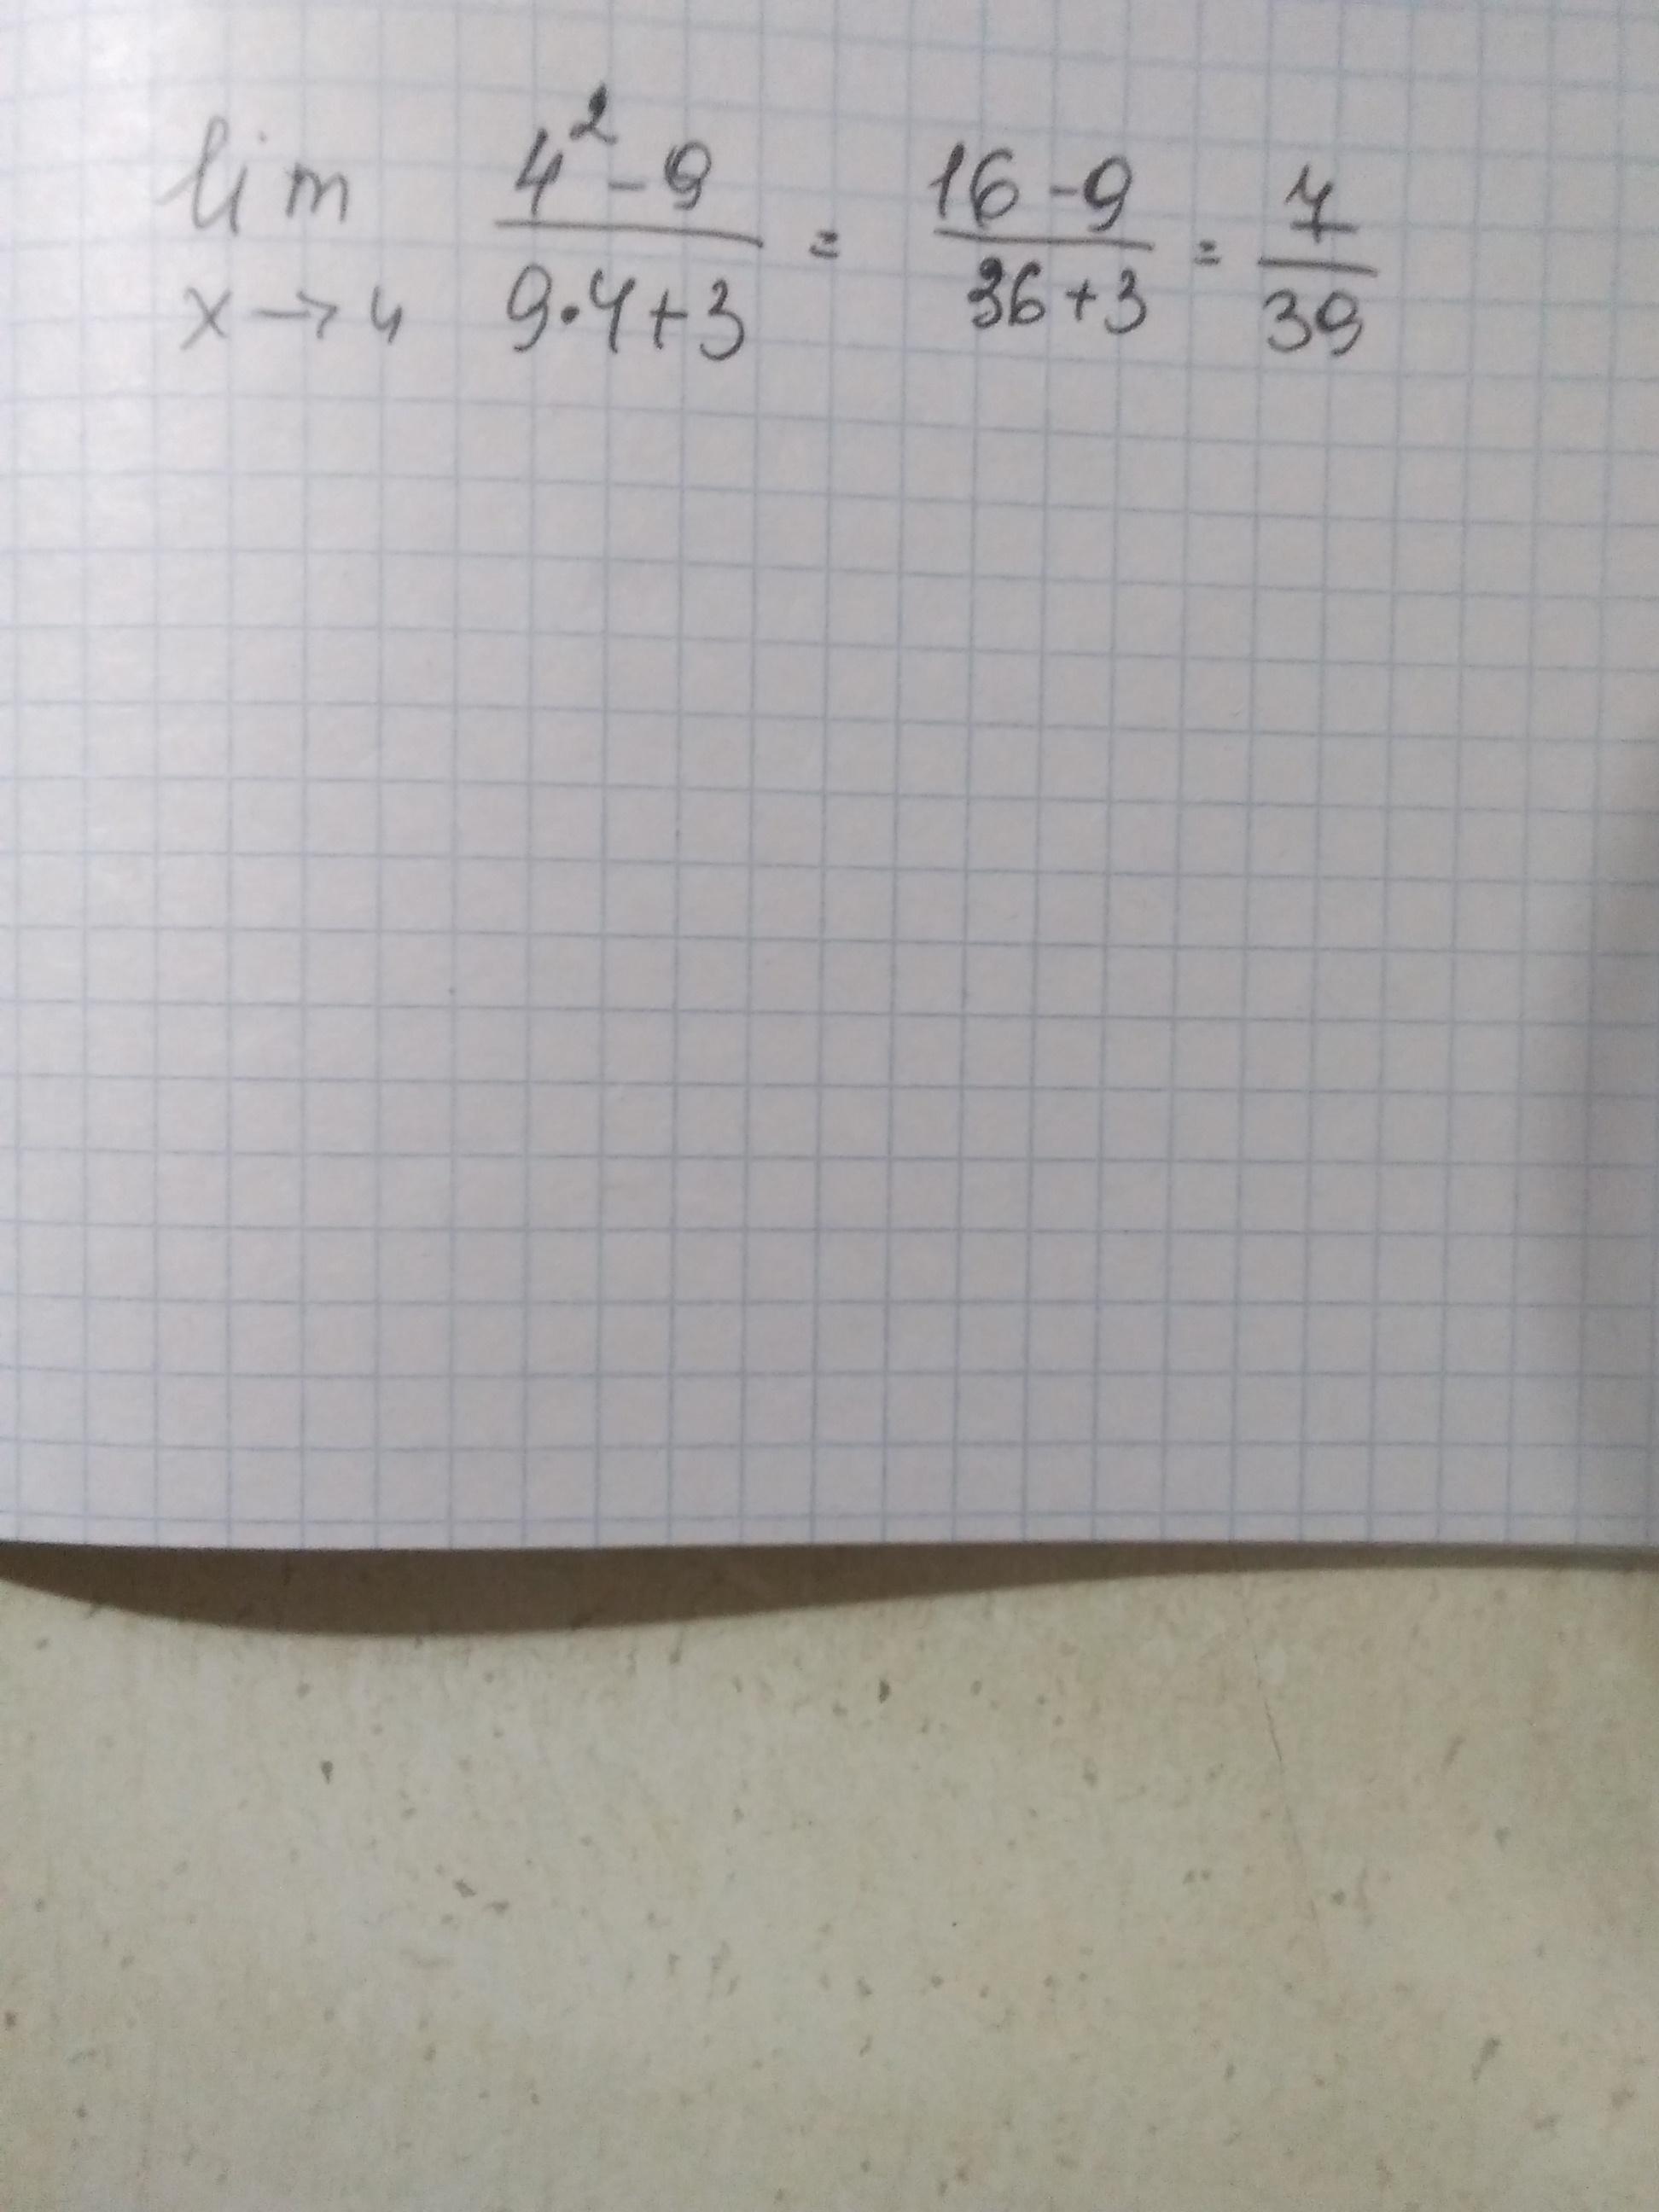 lim 4² - 9 / 9·4+3 = 16 - 9 / 36+3 = 7 / 39
x → 4